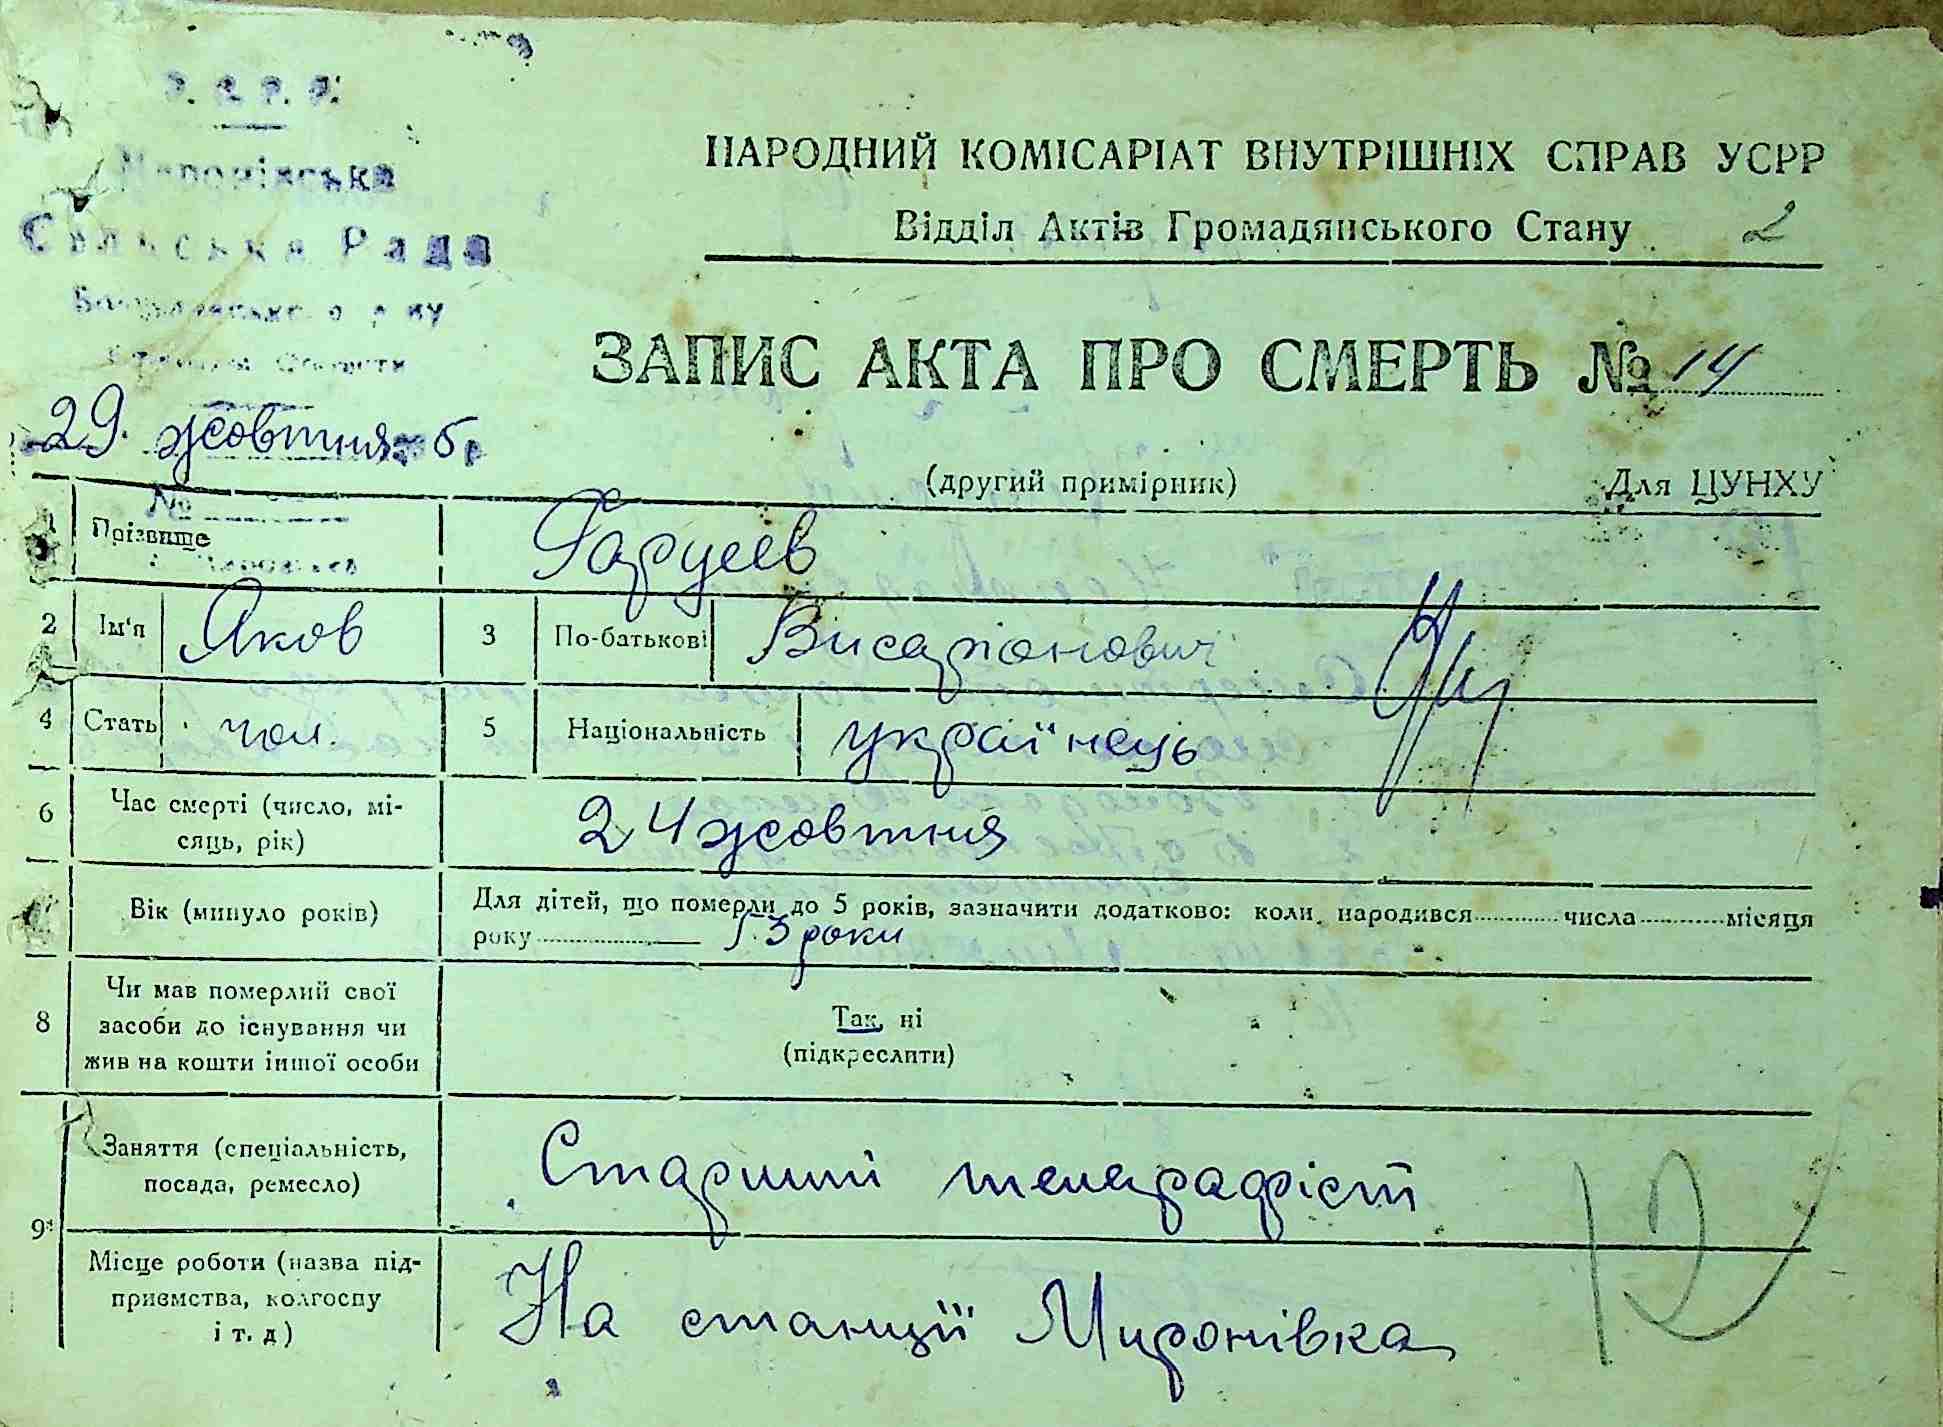 Сільська Рада
НАРОДНИЙ КОМІСАРІАТ ВНУТРІШНІХ СПРАВ УСРР
Відділ Актів Громадянського Стану 2
ЗАПИС АКТА ПРО СМЕРТЬ № 14
29 жовтня
(другий примірник) Для ЦУНХУ
№
Прізвище
2 Ім'я Яков 3 По-батькові Висаріонович
4 Стать чол. 5 Національність українець
6 Час смерті (число, мі-
сяць, рік) 24 жовтня
Вік (минуло років) Для дітей, що померли до 5 років, зазначити додатково: коли народився числа місяця
року 53 роки
8 Чи мав померлий свої
засоби до існування чи
жив на кошти іншої особи
Так, ні
(підкреслити)
9 Заняття (спеціальність,
посада, ремесло) Старший телеграфіст
Місце роботи (назва під-
приємства, колгоспу
і т. д) На станції Миронівка
12